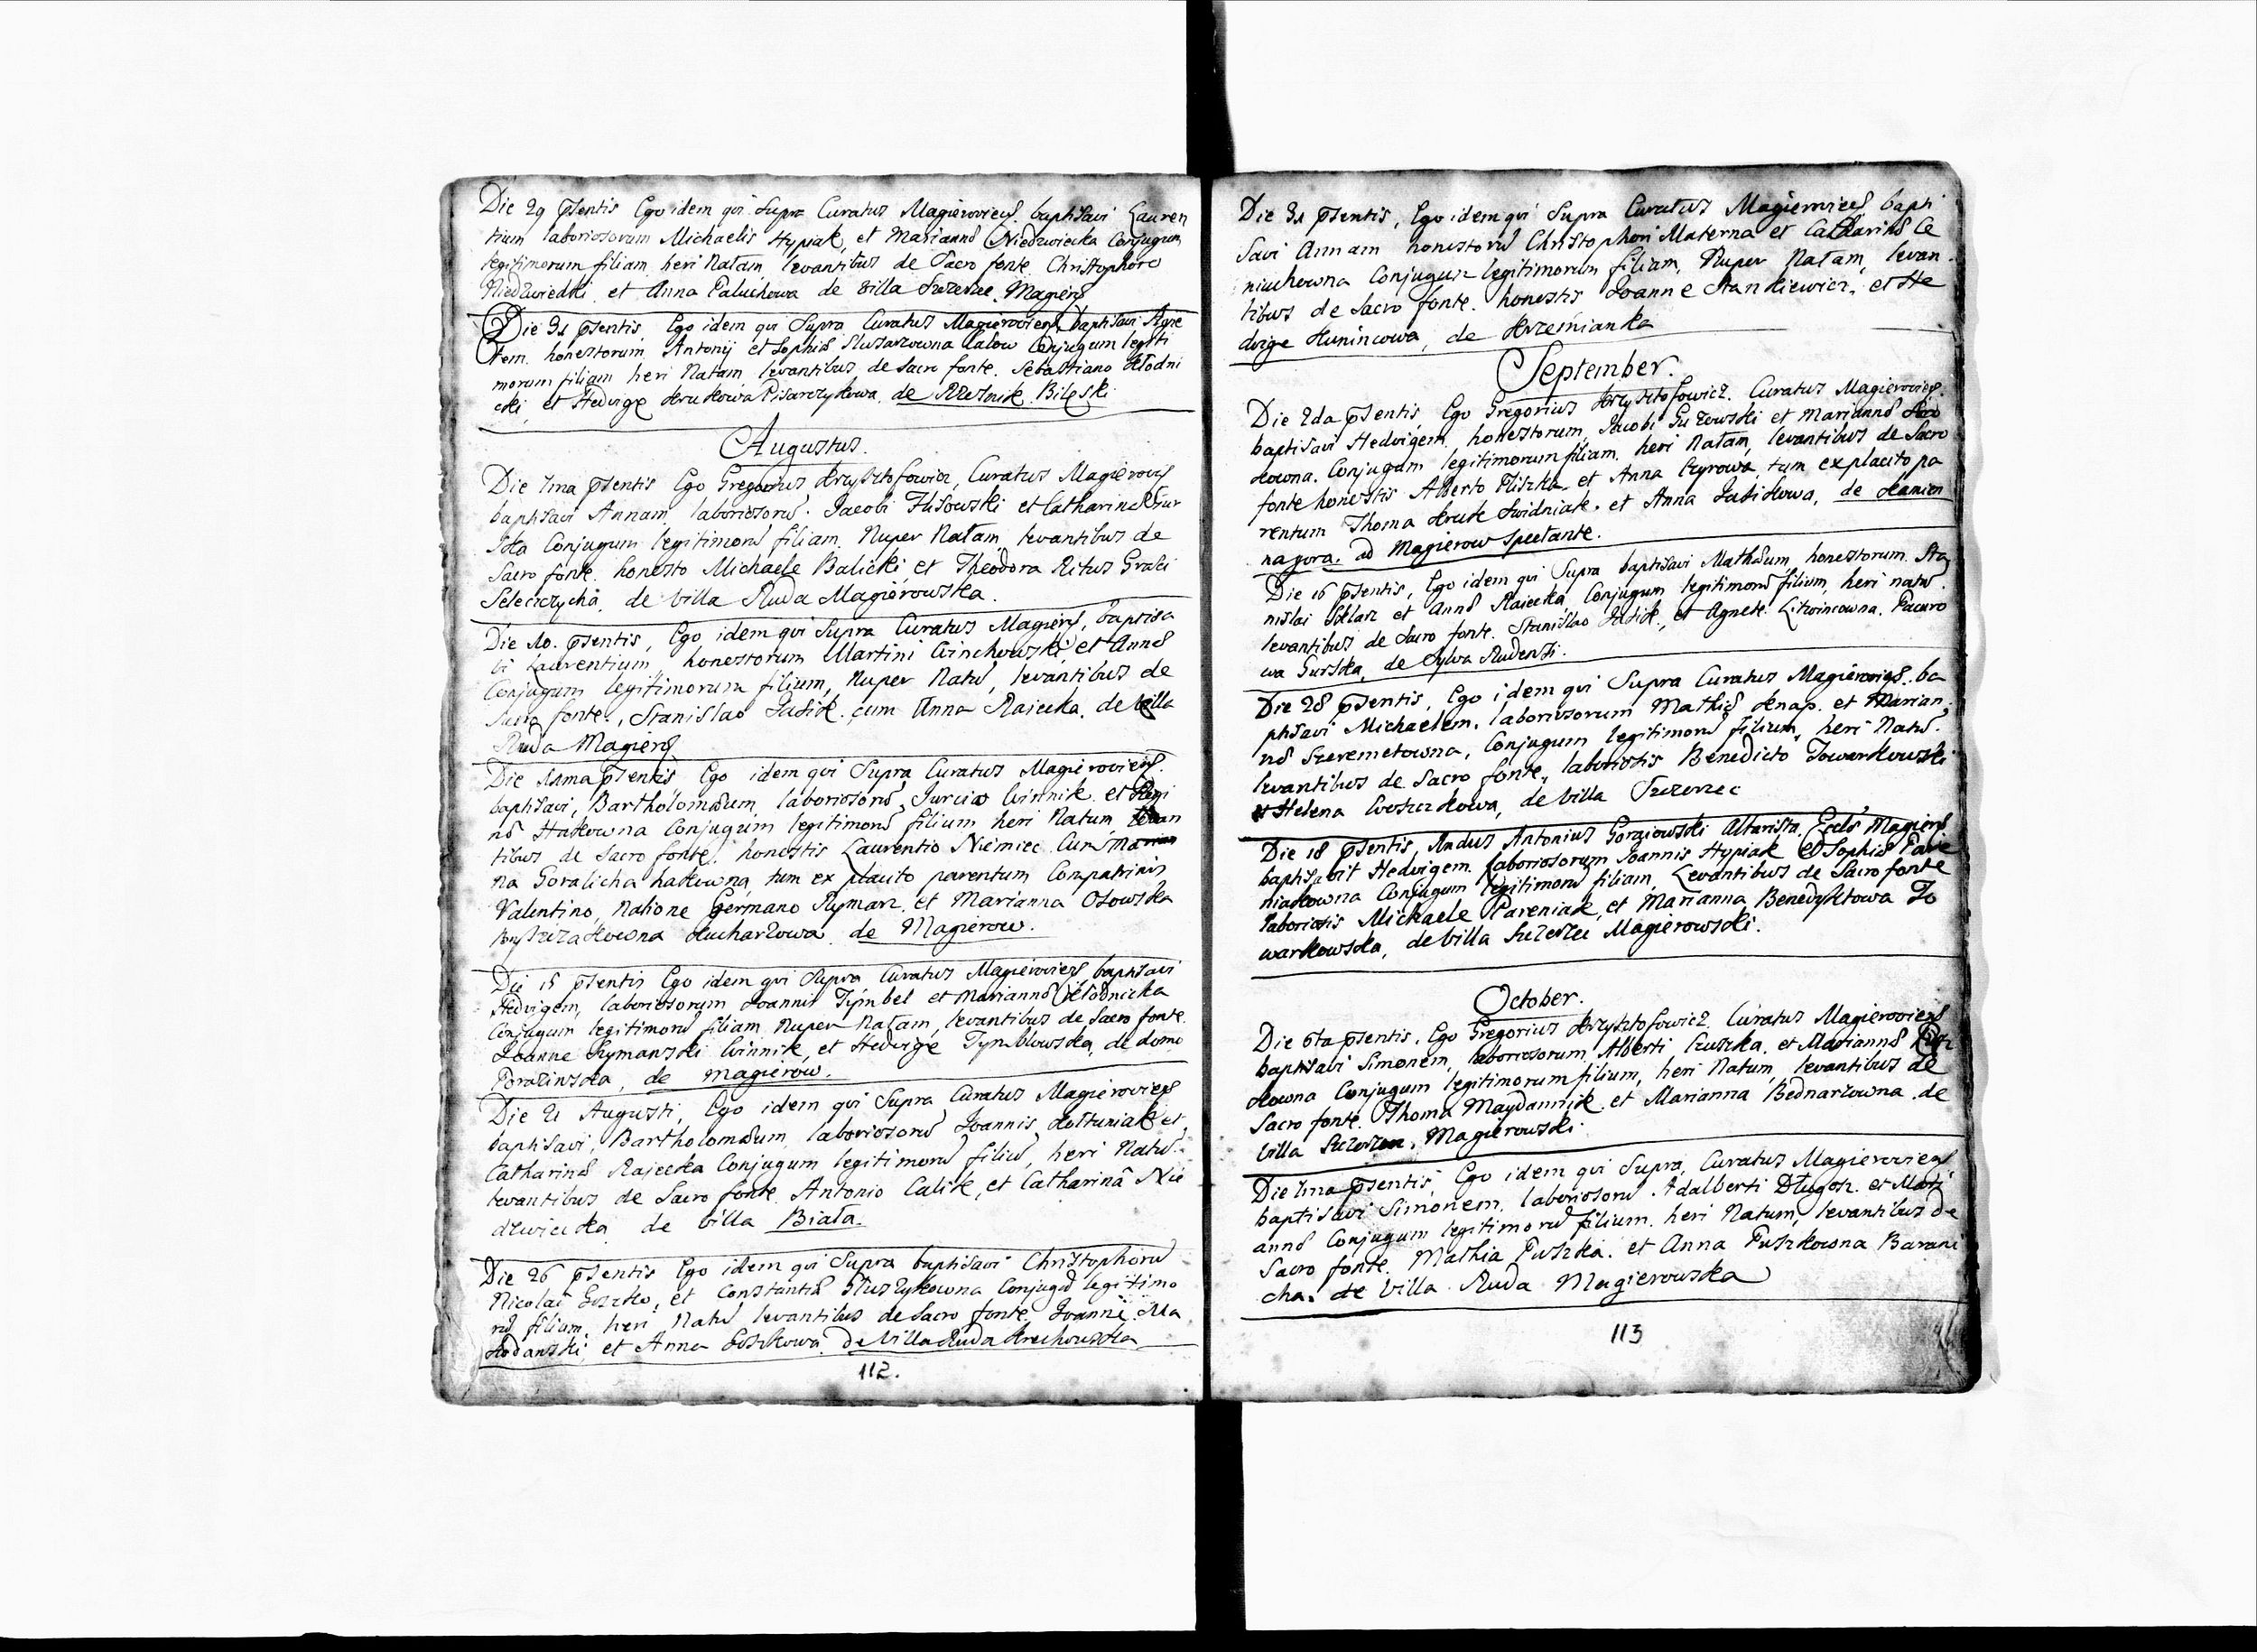 Die 29 p̄sentis Ego idem qui Supra Curatus Magieroviens. baptisavi Lauren
tium laboriosorum Michaelis Hypiak, et Mariannæ Niedzwiecka Conjugum
legitimorum filiam heri Natam, levantibus de Sacro fonte Christophoro
Niedzwiedzki et Anna Paluchowa de Villa Szczerzec Magiers
Die 31 p̄sentis Ego idem qui Supra Curatus Magieroviens. baptisavi Agne
tem honestorum Antonij et Sophiæ Conjugum legiti
morum filiam heri Natam levantibus de Sacro fonte. Sebastiano Kłodni
cki, et Hedvige Krukowa Pisarczykowa de
Augustus.
Die 7ma p̄sentis Ego Gregorius Krzysztofowicz, Curatus Magierovs
baptisavi Annam laboriosorū Jacobi Flisowski et Catharinæ Gur
ska Conjugum legitimorū filiam Nuper Natam, levantibus de
Sacro fonte. honesto Michaele Balicki, et Theodora Ritus Græci
de Villa Ruda Magierowska.
Die 10. p̄sentis, Ego idem qui Supra Curatus Magiers, baptisa
vi Laurentium, honestorum Martini et Annæ
Conjugum legitimorum filium, Nuper Natū, levantibus de
Sacro fonte, Stanislao Jasik cum Anna Raiecka, de Villa
Ruda Magiers
Die 11ma p̄sentis Ego idem qui Supra Curatus Magieroviens.
baptisavi, Bartholomæum laboriosorū Winnik et Regi
næ Hakowna Conjugum legitimorū filium heri Natum, levan
tibus de Sacro fonte, honestis Laurentio Niemiec cum Marian
na Goralicha hakowna, tum ex placito parentum Conpatrinis
Valentino, Natione Germano Rymarz et Marianna Osowska
Kucharzowa de Magierow.
Die 15 p̄sentis Ego idem qui Supra Curatus Magieroviens baptisavi
Hedvigem, laboriosorum Joannis Tymbel et Mariannæ Kłodnicka
Conjugum legitimorū filiam Nuper Natam, levantibus de Sacro fonte.
Joanne Szymanski Winnik, et Hedvige Tymblowska, de domo
Porazinska, de Magierow.
Die 21 Augusti, Ego idem qui Supra Curatus Magieroviens
baptisavi, Bartholomæum laboriosorū Joannis Kottuniak et
Catharinæ Rajecka Conjugum legitimorū filiū, heri Natū
levantibus de Sacro fonte Antonio Calik, et Catharinâ Nie
dzwiecka de Villa Biała.
Die 26 p̄sentis Ego idem qui Supra baptisavi Christophorū
Nicolai et Constantiæ Conjugū legitimo
rū filium, heri Natū levantibus de Sacro fonte Joanne Ma
et Anna de Villa Ruda
112.
Die 31 p̄sentis, Ego idem qui Supra Curatus Magieroviens bapti
savi Annam honestorū Christophori Materna et Catharinæ Ce
niuchowna Conjugum legitimorum filiam, Nuper Natam, levan
tibus de Sacro fonte. honestis Joanne Stankiewicz, et He
dvige Huńincowa, de Krzemianka
September.
Die 2da p̄sentis, Ego Gregorius Krzysztofowicz. Curatus Magieroviens.
baptisavi Hedvigem, honestorum Jacobi Guzowski et Mariannæ
kowna Conjugum legitimorum filiam heri Natam, levantibus de Sacro
fonte honestis Alberto Fliszka et Anna tum ex placito pa
rentum Thoma Kruk Swidniak. et Anna Jasikowa, de Kamien
na gora. ad Magierow spectante.
Die 16 p̄sentis, Ego idem qui Supra baptisavi Mathæum, honestorum Sta
nislai Szklarz et Annæ Raiecka, Conjugum legitimorū filium, heri natū.
levantibus de Sacro fonte. Stanislao Jasik, et Agnete Litwincowna.
wa Gurska, de Sylva Rudenski.
Die 28 p̄sentis, Ego idem qui Supra Curatus Magieroviens. ba
ptisavi Michaelem, laboriosorum Mathiæ Knap. et Marian
næ Szeremetowna, Conjugum legitimorū filium, heri Natū.
levantibus de Sacro fonte, laboriosis Benedicto Towarkowski
et Helena de Villa Szczerzec
Die 18 p̄sentis, Rndus Antonius Gorgiowski Altarista Eccls Magiers
baptisavit Hedvigem, laboriosorum Joannis Hypiak et Sophiæ Pare
niakowna Conjugum legitimorū filiam, Levantibus de Sacro fonte
laboriosis Michaele Pareniak, et Marianna Benedyktowa To
warkowska, de Villa Szczerzec Magierowski.
October.
Die 6ta p̄sentis, Ego Gregorius Krzysztofowicz. Curatus Magieroviens
baptisavi Simonem, laboriosorum Alberti et Mariannæ
kowna Conjugum legitimorum filium, heri Natum, levantibus de
Sacro fonte. Thoma Maydannik et Marianna Bednarzowna de
Villa Szczerzec Magierowski.
Die 7ma p̄sentis, Ego idem qui Supra, Curatus Magieroviens
baptisavi Simonem, laboriosorū Adalberti Długosz et Mari
annæ Conjugum legitimorū filium heri Natum, levantibus de
Sacro fonte. Mathia Puszka. et Anna Puszkowna Barani
cha. de Villa Ruda Magierowska
113